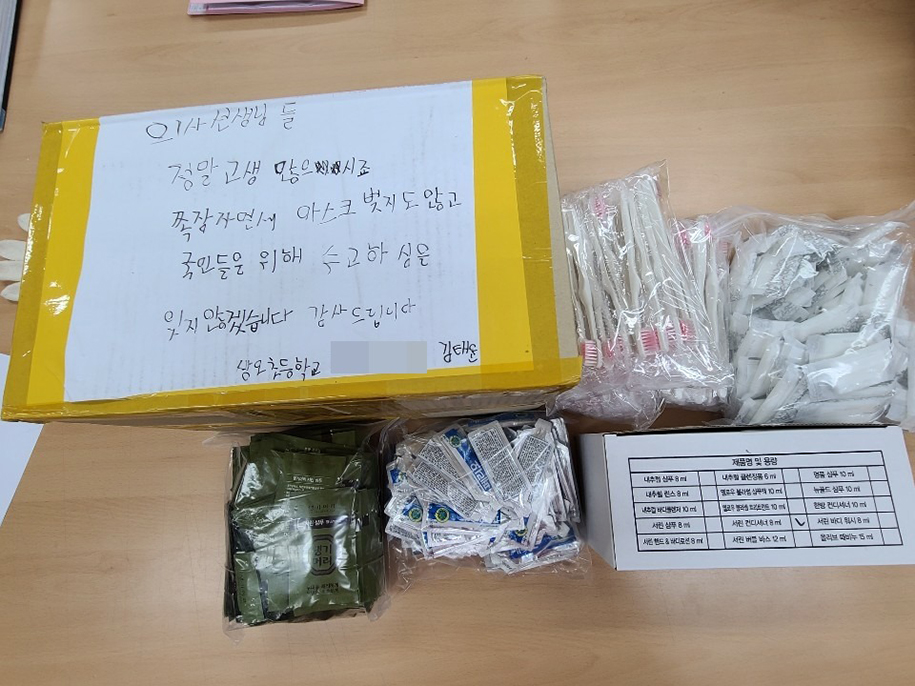 의사선생님 들
정말 고생 많으시죠
쪽잠자면서 마스크 벗지도 않고
국민들을 위해 수고하심을
잊지 않겠습니다 감사드립니다
상오초등학교 김태윤
제품명 및 용량
내추럴 샴푸 8 ml 내추럴 클렌징폼 6 ml 명품 샴푸 10 ml
내추럴 린스 8 ml 옐로우 블라썸 샴푸액 10 ml 뉴골드 샴푸 10 ml
내추럴 바디클렌저 10 ml 옐로우 블라썸 트리트먼트 10 ml 한방 컨디셔너 10 ml
서린 샴푸 8 ml 서린 컨디셔너 8 ml 서린 바디 워시 8 ml
서린 핸드 & 바디로션 8 ml 서린 버블 바스 12 ml 올리브 때비누 15 ml